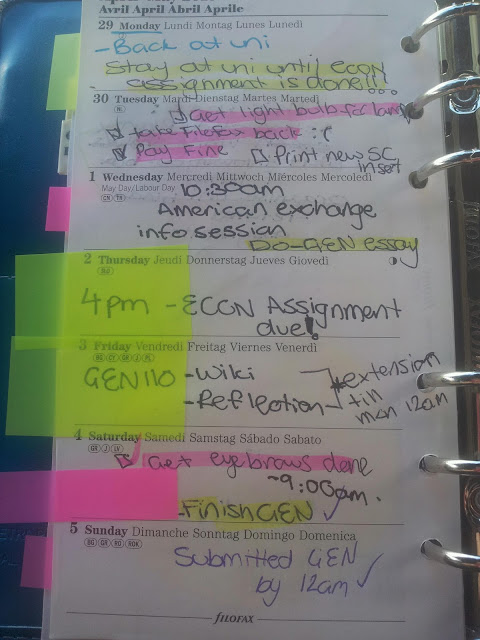 Avril April Abril Aprile
29 Monday Lundi Montag Lunes Lunedì
-Back at uni
Stay at uni until ECON
assignment is done!!!
30 Tuesday Mardi Dienstag Martes Martedì
NL
Get light bulb for lamp
take Filofax back :(
Pay Fine
Print new SC
insert
1 Wednesday Mercredi Mittwoch Miércoles Mercoledì
May Day/Labour Day
10:30am
CN TR
American exchange
info session
DO-GEN essay
2 Thursday Jeudi Donnerstag Jueves Giovedì
4pm - ECON Assignment
due!
3 Friday Vendredi Freitag Viernes Venerdì
BG CY GR J PL
GEN110 -Wiki
-Reflection
*extension
till
mon 12am
4 Saturday Samedi Samstag Sábado Sabato
GR J LV
Get eyebrows done
~9:00am.
-Finish GEN
5 Sunday Dimanche Sonntag Domingo Domenica
BG GR RO ROK
Submitted GEN
by 12am
FILOFAX